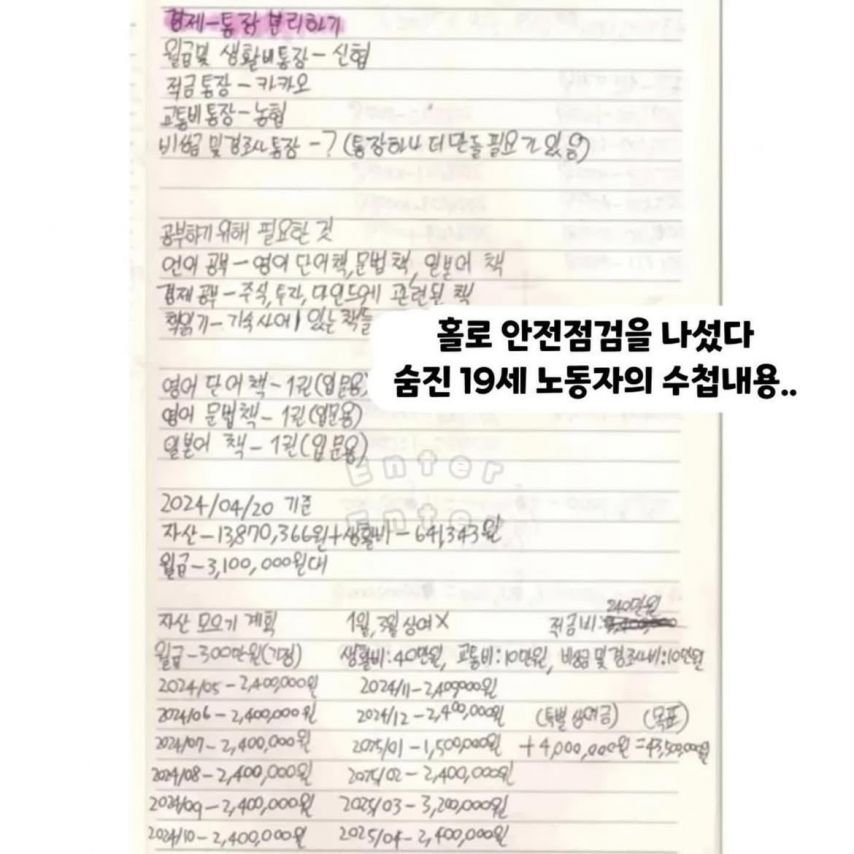 경제-통장 분리하기
월급 및 생활비통장 - 신협
적금통장 - 카카오
교통비통장 - 농협
비상금 및 경조사통장 - ? (통장하나 더 만들 필요가 있음)
공부하기 위해 필요한 것
언어 공부 - 영어 단어책, 문법책, 일본어 책
경제 공부 - 주식, 투자, 마인드에 관련된 책
책읽기 - 기숙사에 있는 책들
홀로 안전점검을 나섰다
숨진 19세 노동자의 수첩내용..
영어 단어책 - 1권(입문용)
영어 문법책 - 1권(입문용)
일본어 책 - 1권(입문용)
Enter
Enter
2024/04/20 기준
자산 - 13,870,366원 + 생활비 - 641,343원
월급 - 3,100,000원대
자산 모으기 계획 1월, 3월 상여X 적금비: 240만원
월급 - 300만원(가정) 생활비: 40만원, 교통비: 10만원, 비상금 및 경조사비: 10만원
2024/05 - 2,400,000원 2024/11 - 2,400,000원
2024/06 - 2,400,000원 2024/12 - 2,400,000원 (특별 상여금) (목표)
2024/07 - 2,400,000원 2025/01 - 1,500,000원 + 4,000,000원 = 43,500,000원
2024/08 - 2,400,000원 2025/02 - 2,400,000원
2024/09 - 2,400,000원 2025/03 - 3,200,000원
2024/10 - 2,400,000원 2025/04 - 2,400,000원